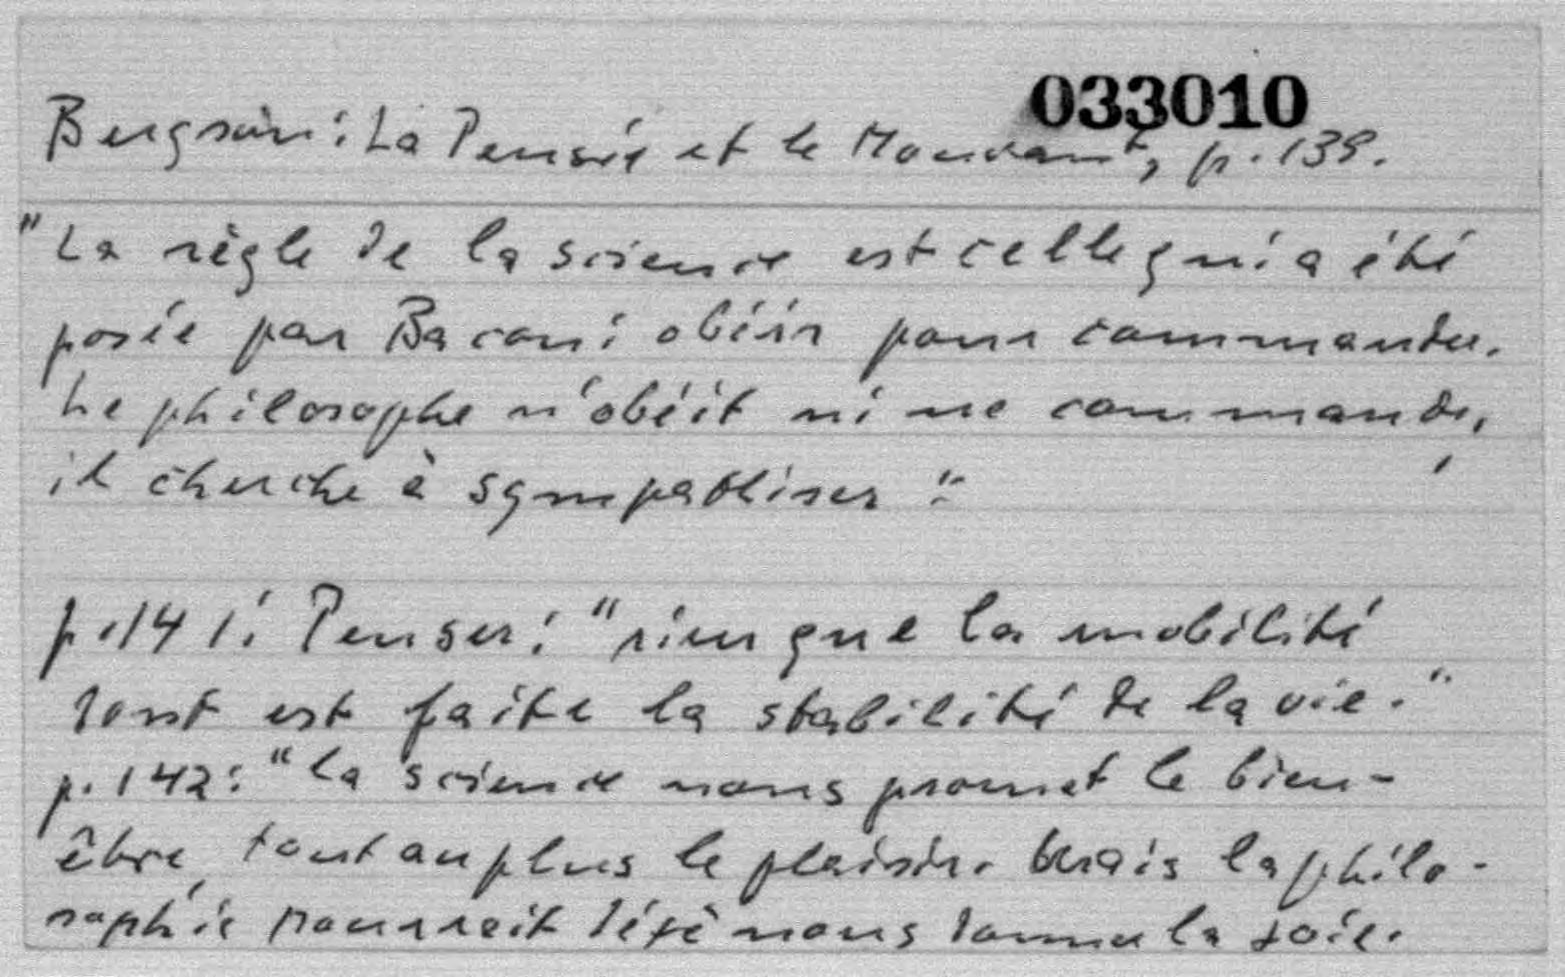 033010
Bergson: La Pensée et le Mouvant, p. 139.
"La règle de la science est celle qui a été
posée par Bacon: obéir pour commander.
Le philosophe n'obéit ni ne commande,
il cherche à sympathiser".
p. 141: Penser: "rien que la mobilité
dont est faite la stabilité de la vie."
p. 142: "la science nous promet le bien-
être, tout au plus le plaisir. Mais la philo-
sophie pourrait déjà nous donner la joie.